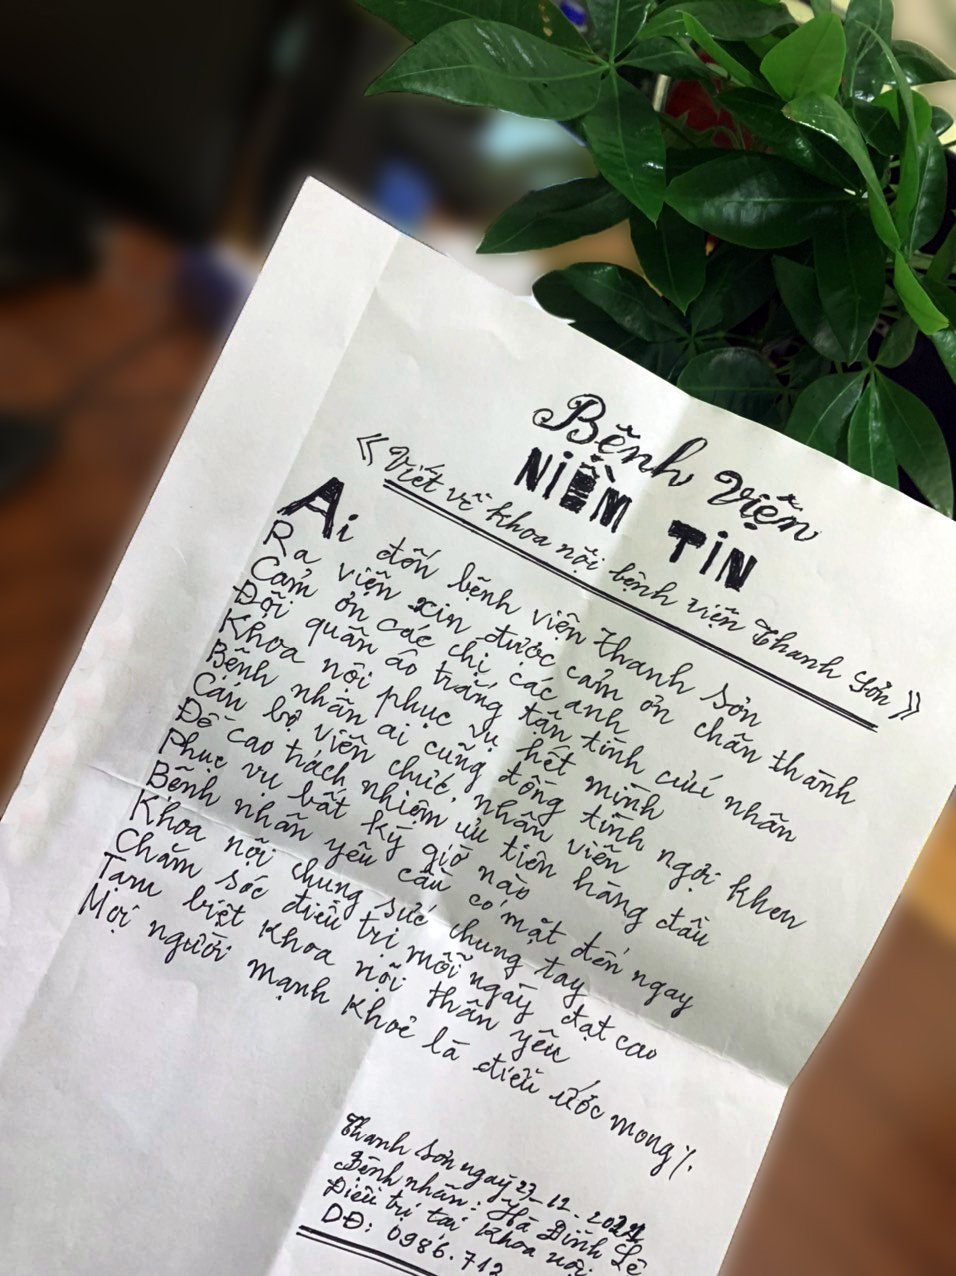 Bệnh Viện
NIỀM TIN
《 Viết về khoa nội bệnh viện Thanh Sơn 》
Ai đến bệnh viện Thanh Sơn
Ra viện xin được cảm ơn chân thành
Cảm ơn các chị, các anh
Đội quân áo trắng tận tình cứu nhân
Khoa nội phục vụ hết mình
Bệnh nhân ai cũng đồng tình ngợi khen
Cán bộ viên chức, nhân viên
Đề cao trách nhiệm ưu tiên hàng đầu
Phục vụ bất kỳ giờ nào
Bệnh nhân yêu cầu có mặt đến ngay
Khoa nội chung sức chung tay
Chăm sóc điều trị mỗi ngày đạt cao
Tạm biệt khoa nội thân yêu
Mọi người mạnh khoẻ là điều ước mong ./.
Thanh Sơn ngày 23-12-
Bệnh nhân: Hà Đình Lê
Điều trị tại khoa nội
DĐ: 0986.712